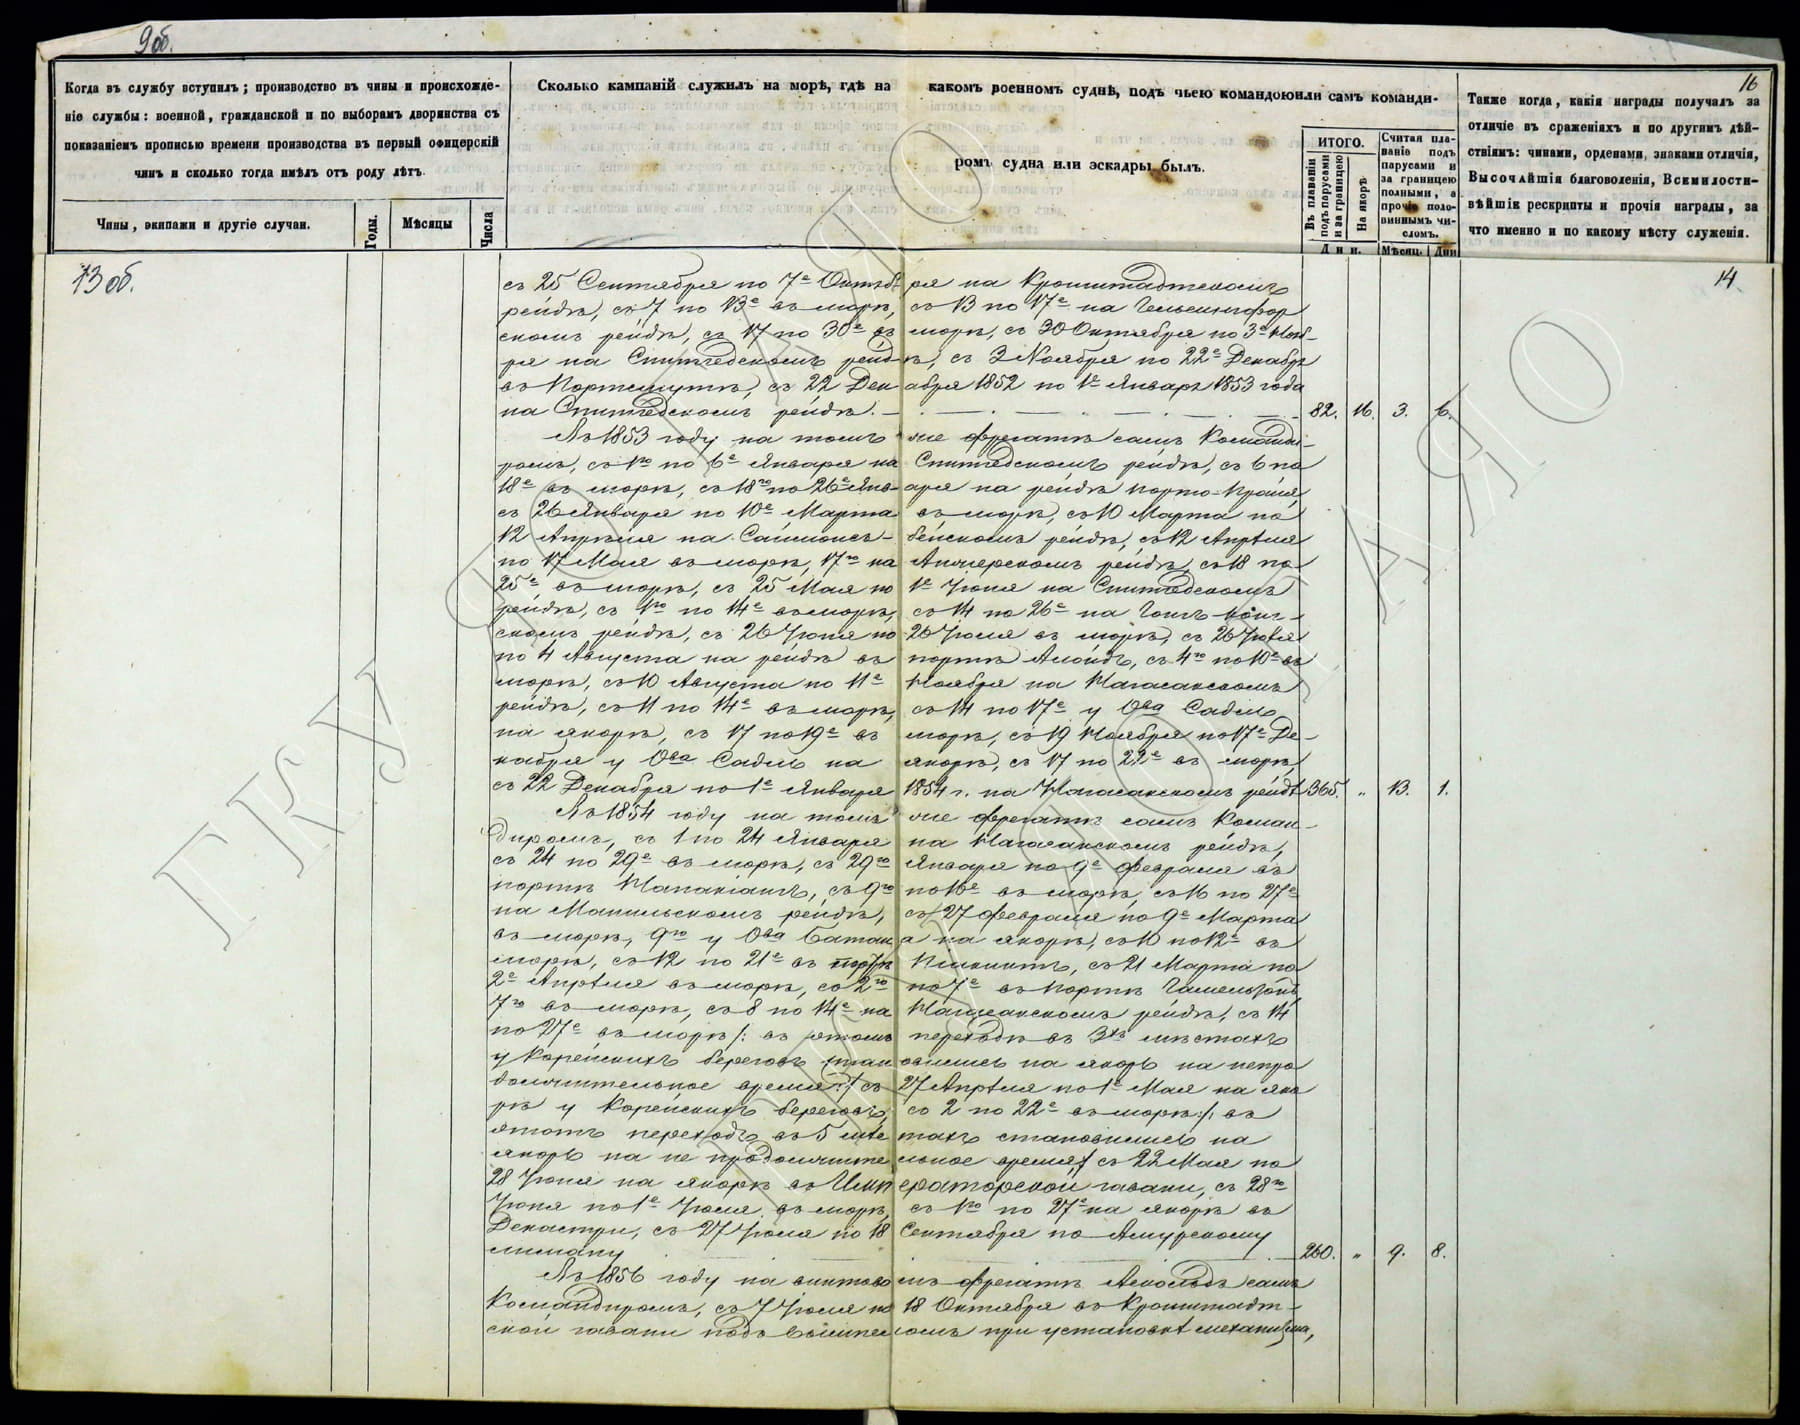 9 об.
16
Когда въ службу вступилъ; производство въ чины и происхожде-
ніе службы: военной, гражданской и по выборамъ дворянства съ
показаніемъ прописью времени производства въ первый офицерскій
чинъ и сколько тогда имѣлъ отъ роду лѣтъ.
Чины, экипажи и другіе случаи.
Годы.
Мѣсяцы
Числа
Сколько кампаній служилъ на морѣ, гдѣ на какомъ военномъ суднѣ, подъ чьею командою или самъ команди-
ромъ судна или эскадры былъ.
ИТОГО.
Въ плаваніи подъ парусами и за границею
На якорѣ
Дни.
Считая пла-
ваніе подъ
парусами и
за границею
полными, а
прочія поло-
виннымъ чи-
сломъ.
Мѣсяц. Дни
Также когда, какія награды получалъ за
отличіе въ сраженіяхъ и по другимъ дѣй-
ствіямъ: чинами, орденами, знаками отличія,
Высочайшія благоволенія, Всемилости-
вѣйшіе рескрипты и прочія награды, за
что именно и по какому мѣсту служенія.
13 об.
14.
съ 25 Сентября по 7е Октября на Кронштадтскомъ
рейдѣ, съ 7 по 13е въ морѣ, съ 13 по 17е на Гельсингфор
скомъ рейдѣ, съ 17 по 30е въ морѣ, съ 30 Октября по 3е Нояб-
ря на Спитгедскомъ рейдѣ, съ 3 Ноября по 22е Декабря
въ Портсмутѣ, съ 22 Декабря 1852 по 1е Января 1853 года
на Спитгедскомъ рейдѣ. 82. 16. 3. 6.
Въ 1853 году на томъ же фрегатѣ самъ Команди-
ромъ, съ 1го по 6е Января на Спитгедскомъ рейдѣ, съ 6 по
18е въ морѣ, съ 18го по 26е Января на рейдѣ Порто-Прайя,
съ 26 Января по 10е Марта въ морѣ, съ 10 Марта по
12 Апрѣля на Саймонсъ-бейскомъ рейдѣ, съ 12 Апрѣля
по 17 Мая въ морѣ, 17го на Анжерскомъ рейдѣ, съ 18 по
25е въ морѣ, съ 25 Мая по 1е Іюня на Спитгедскомъ
рейдѣ, съ 1го по 14е въ морѣ, съ 14 по 26е на Гонгъ-конг-
скомъ рейдѣ, съ 26 Іюня по 26 Іюля въ морѣ, съ 26 Іюля
по 4 Августа на рейдѣ въ портѣ Ллойдъ, съ 4го по 10е въ
морѣ, съ 10 Августа по 11е Ноября на Нагасакскомъ
рейдѣ, съ 11 по 14е въ морѣ, съ 14 по 17е у Ова Садлъ
на якорѣ, съ 17 по 19е въ морѣ, съ 19 Ноября по 17е Де-
кабря у Ова Садлъ на якорѣ, съ 17 по 22е въ морѣ,
съ 22 Декабря по 1е Января 1854 г. на Нагасакскомъ рейдѣ 365. " 13. 1.
Въ 1854 году на томъ же фрегатѣ самъ Коман-
диромъ, съ 1 по 24 Января на Нагасакскомъ рейдѣ,
съ 24 по 29е въ морѣ, съ 29го Января по 9е Февраля въ
портѣ Напакіангъ, съ 9го по 16е въ морѣ, съ 16 по 27е
на Манильскомъ рейдѣ, съ 27 Февраля по 9е Марта
въ морѣ, 9го у Ова Батана на якорѣ, съ 10 по 12е въ
морѣ, съ 12 по 21е въ портѣ, съ 21 Марта по
2е Апрѣля въ морѣ, со 2го по 7е въ портѣ Гамельтонъ
7го въ морѣ, съ 8 по 14е на Нагасакскомъ рейдѣ, съ 14
по 27е въ морѣ /: въ этомъ переходѣ въ 3хъ мѣстахъ
у Корейскихъ береговъ становились на якорь на непро
должительное время :/ съ 27 Апрѣля по 1е Мая на яко
рѣ у Корейскихъ береговъ, со 2 по 22е въ морѣ /: въ
этотъ переходъ въ 5 мѣстахъ становились на
якорь на не продолжительное время :/ съ 22 Мая по
28 Іюня на якорѣ въ Императорской гавани, съ 28го
Іюня по 1е Іюля въ морѣ, съ 1го по 27е на якорѣ въ
Декастри, съ 27 Іюля по 18 Сентября по Амурскому
лиману 260. " 9. 8.
Въ 1856 году на винтовомъ фрегатѣ Аскольдъ самъ
Командиромъ, съ 7 Іюля по 18 Октября въ Кронштадт-
ской гавани подъ вымпеломъ при установкѣ механизма,